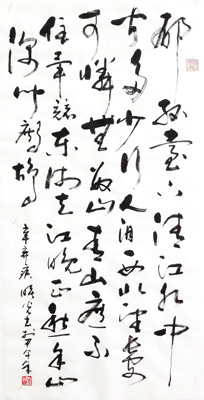 郁孤臺下清江水中
间多少行人泪西北望長安
可憐無数山青山遮不
住畢竟東流去江晚正愁余山
深闻鹧鸪
辛弃疾
甲午年